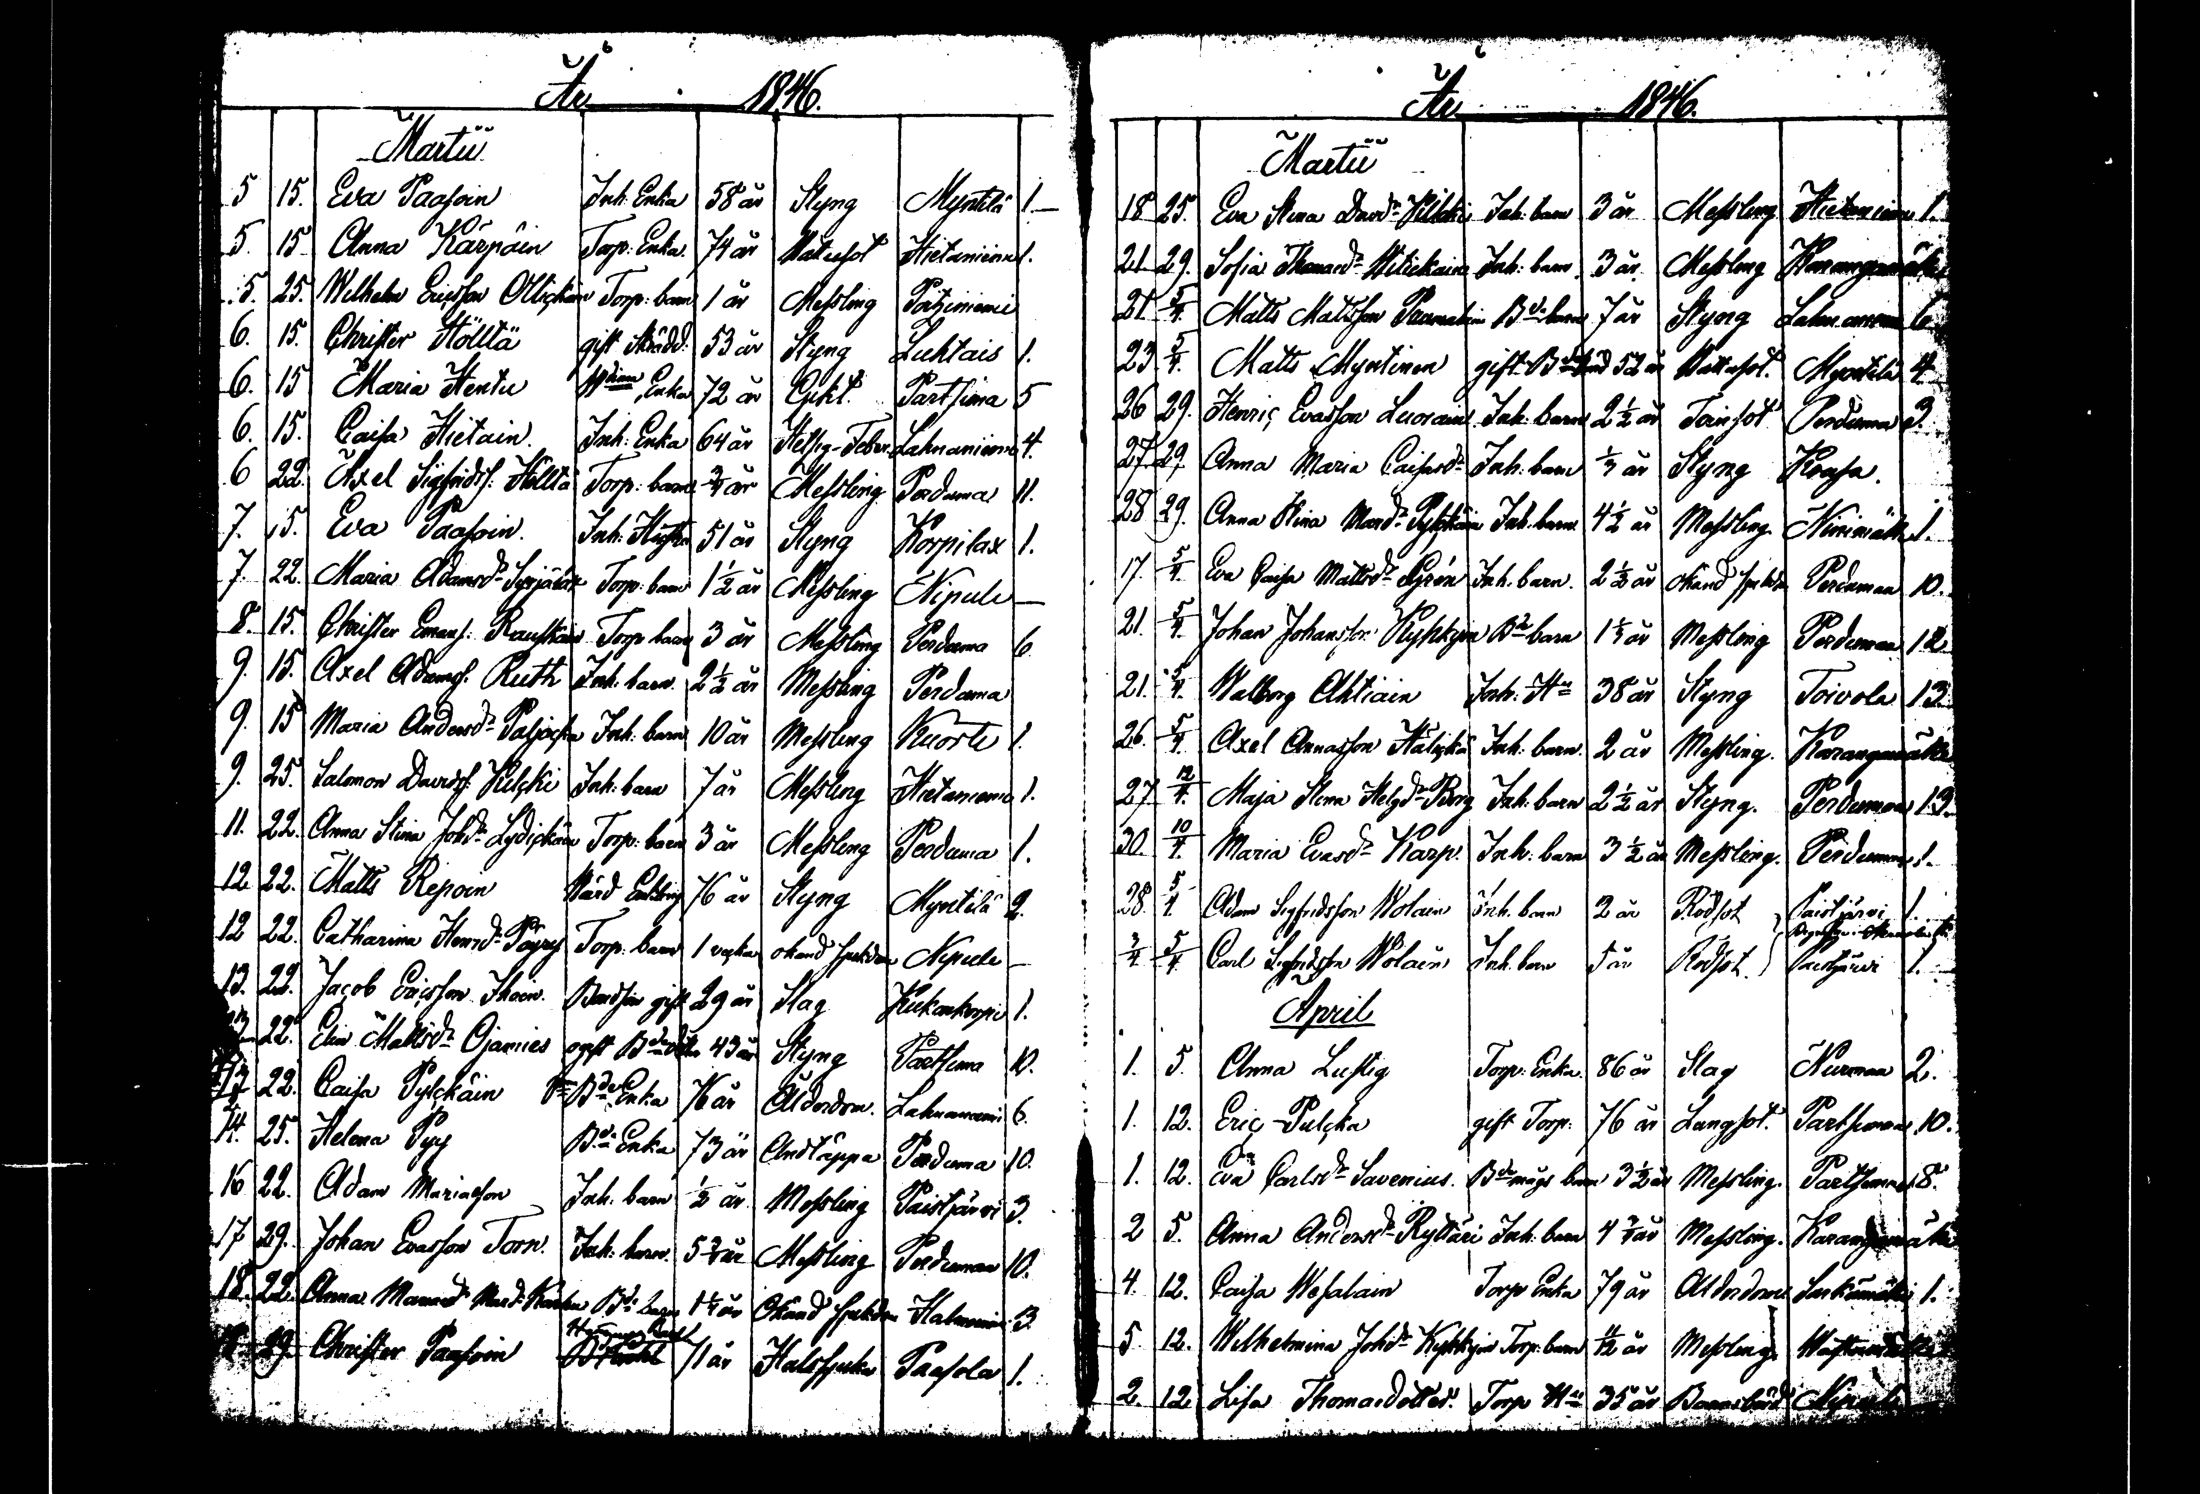 År 1846.
Martii
5 15. Eva Paasoin Inh. Enka 58 år Styng Myntilä 1.
5. 15 Anna Kärpäin Torp. Enka. 74 år Hietaniemi 1.
5. 25. Wilhelm Ericsson Ollickain Torp: barn 1 år Messling
6. 15. Christer Höltta gift 53 år Styng Luhtais 1.
6. 15 Maria Hentu Enka 72 år Partsima 5
6. 15. Caisa Hietain. Inh: Enka 64 år Lahnaniemi 4.
6 22. Axel Sigfridss. Höltta Torp: barn 3/4 år Messling Porduma 11.
7. 15. Eva Paasoin. Inh: Hustru 51 år Styng Korpilax 1.
7. 22. Maria Adamsdr Torp: barn 1 1/2 år Messling Nipuli
8. 15. Christer Torp barn 3 år Messling Porduma 6
9. 15. Axel Adamss. Ruth Inh: barn. 2 1/2 år Messling Porduma
9. 15 Maria Andersdr Inh: barn 10 år Messling Kuorti 1.
9. 25. Salomon Davidss. Kilcki Inh: barn 7 år Messling Hietaniemi 1.
11. 22. Anna Stina Johdr Lydickain Torp: barn 3 år Messling Porduma 1.
12 22. Matts Repoin Enkling 76 år Styng Myntilä 2.
12 22. Catharina Henrdr Pöyry Torp: barn 1 vecka okänd sjukdom Nipuli
13. 22. Jacob Ericsson Ihain. Bondson gift 29 år Slag 1.
22. Elin Mattsdr Ojamies ogift 43 år Styng Partsima 10.
22. Caisa Pylckäin Bde Enka 76 år Ålderdom. Lahnaniemi 6.
14. 25. Helena Pyy Bde Enka 73 år Andtäppa Porduma 10.
16 22. Adam Mariasson Inh: barn 1/2 år Messling Paistjärvi 3.
17 29. Johan Evasson Torn. Inh: barn. Messling Pordumaa 10.
18. 22. Anna Bde barn Okänd sjukdom 3.
29. Christer Paasoin 71 år Halssjuka Paasola 1.
År 1846.
Martii
18 25. Eva Stina Davdr Kilcki Inh: barn 3 år Messling Hietaniemi 1.
21 29. Sofia Inh: barn 3 år Messling Karangamäki
21 5/4. Matts Mattsson Bde barn 7 år Styng Lahnaniemi 6
23 5/4. Matts Myntinen gift 52 år Myntilä 4
26 29. Henric Evasson Luorain Inh: barn 2 1/2 år Porduma 3.
27 29 Anna Maria Caisasdr Inh: barn 1/3 år Styng
28 29. Anna Stina Pylckäin Inh. barn 4 1/2 år Messling. Ninimäki 1.
17. 5/4. Eva Caisa Mattsdr Grén Inh. barn. 2 1/2 år okänd sjukdom Pordumaa 10.
21. 5/4. Johan Johansson Kyhkyin Bde barn 1 1/3 år Messling Pordumaa 12
21. 5/4. Walborg Ahtiain Inh: Hu 38 år Styng Toivola 13.
26. 5/4. Axel Annasson Inh: barn. 2 år Messling. Karangamäki
27 12/4. Maja Stina Helgdr Borg Inh: barn 2 1/2 år Styng. Pordumaa 13.
30. 10/4. Maria Evasdr Karp. Inh: barn 3 1/2 år Messling. Pordumaa 1.
28 5/4. Adam Sigfridsson Wolain Inh. barn 2 år Rödsot Paistjärvi 1.
3/4 5/4 Carl Sigfridsson Wolain Inh. barn Rödsot Paistjärvi 1.
April
1. 5. Anna Lustig Torp: Enka. 86 år Slag Nurmaa 2.
1. 12. Eric Pulcka gift Torp: 76 år Lungsot. Partsimaa 10.
1. 12. Eva Carlsdr Savenius. Bde mågs barn 3 1/2 år Messling. Partsimaa 8.
2 5. Anna Andersdr Ryttäri Inh: barn Messling. Karangamäki
4. 12. Caisa Wesalain Torp Enka 79 år Ålderdom 1.
5 12. Wilhelmina Johdr Kyhkyin Torp: barn Messling
2. 12. Lisa Thomasdotter. Torp Hu 35 år Barnsbörd Nipuli